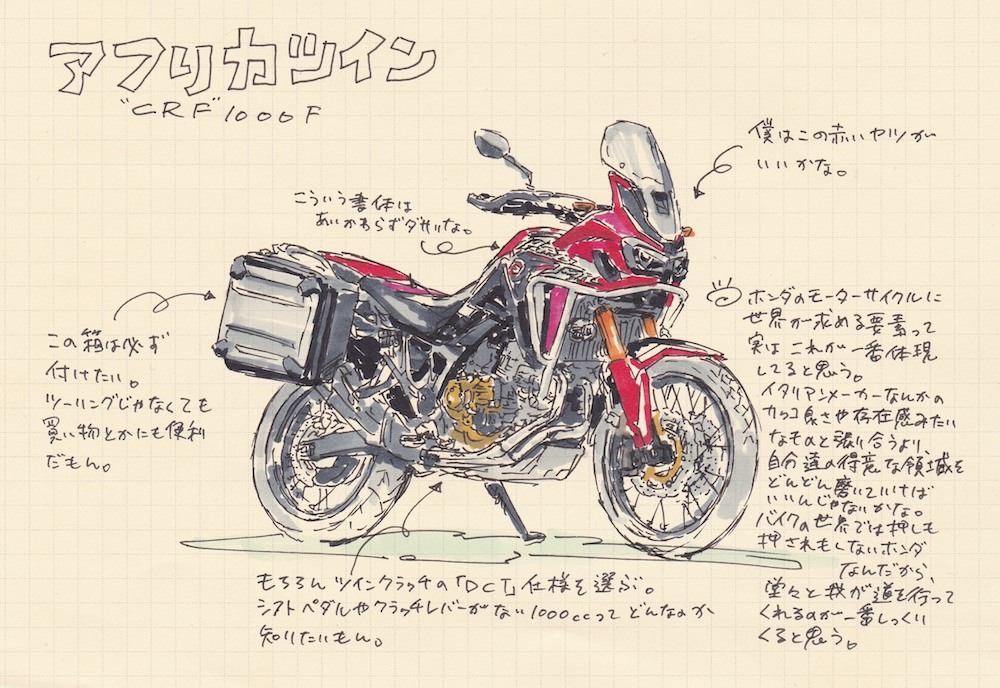 アフリカツイン
"CRF"1000F
僕はこの赤いヤツが
いいかな。
こういう書体は
あいかわらずダサいな。
この箱は必ず
付けたい。
ツーリングじゃなくても
買い物とかにも便利
だもん。
ホンダのモーターサイクルに
世界が求める要素って
実はこれが一番体現
してると思う。
イタリアンメーカーなんかの
カッコ良さや存在感みたい
なものと張り合うより、
自分達の得意な領域を
どんどん磨いていけば
いいんじゃないかな。
バイクの世界では押しも
押されもしないホンダ
なんだから、
堂々と我が道を行って
くれるのが一番しっくり
くると思う。
もちろんツインクラッチの「DCT」仕様を選ぶ。
シフトペダルやクラッチレバーがない1000ccってどんなのか
知りたいもん。